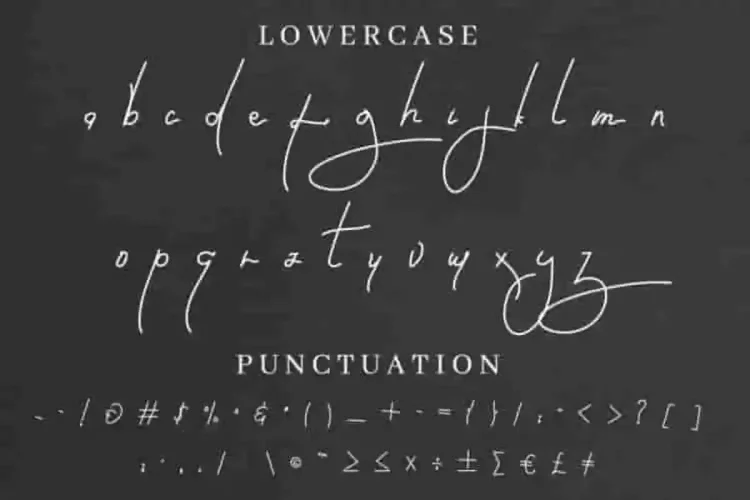 LOWERCASE
a b c d e f g h i j k l m n
o p q r s t u v w x y z
PUNCTUATION
! @ # $ % & ( ) _ + - = { } / : < > ? [ ]
; . / \ © ≥ ≤ × ÷ ± Σ € £ ≠